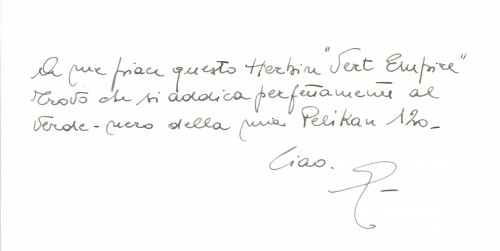 A me piace questo Herbin "Vert Empire"
Trovo che si addica perfettamente al
verde-nero della mia Pelikan 120-
Ciao.